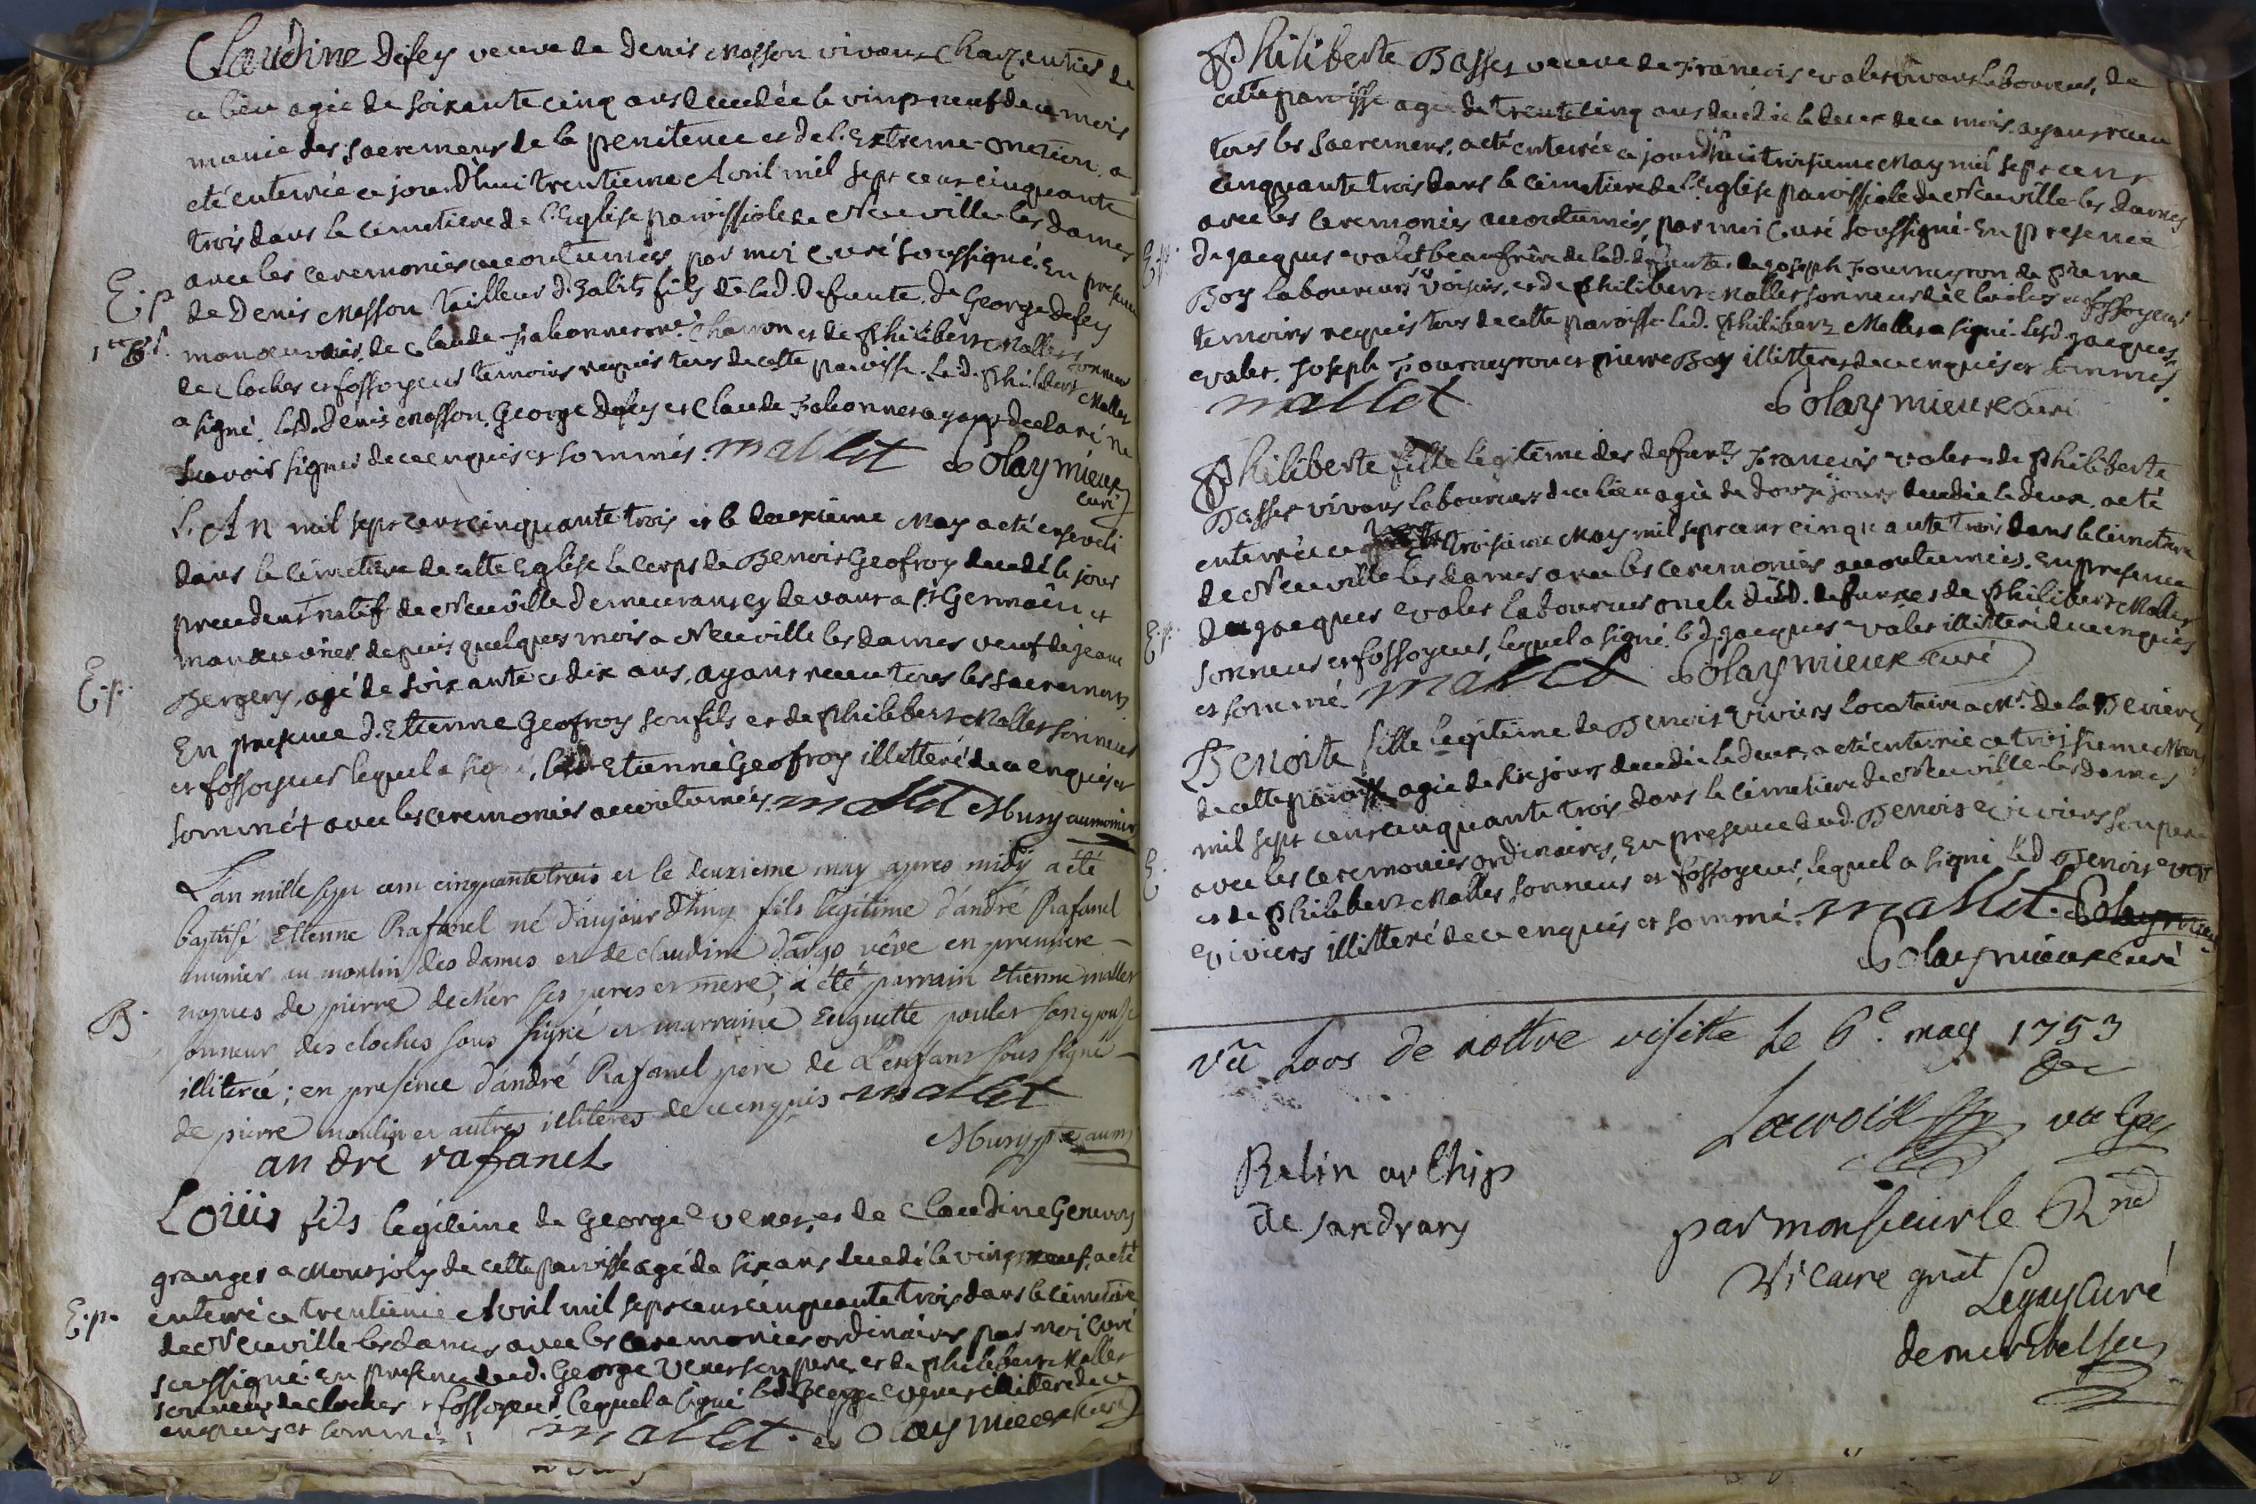 Claudine Defey veuve de Denis Masson vivant Charpentier de
ce lieu agée de soixante cinq ans decedée le vingt neuf de ce mois
munie des sacremens de la penitence et de l'Extreme-onction, a
eté enterrée ce jourd'hui trentieme Avril mil sept cent cinquante
trois dans le cimetiere de l'Eglise paroissiale de Neuville-les dames
avec les ceremonies accoutumées par moi Curé soussigné. En presence
E.p
de Denis Masson Tailleur d'habits fils de lad. Defunte, de George Defey
manoeuvrier, de Claude Charron et de Philibert Mallet sonneur
de Cloches et fossoyeur temoins requis tous de cette paroisse. Led. Philibert Mallet
a signé. Lesd. Denis Masson, George Defey et Claude ayant declaré ne
scavoir signer de ce enquis et sommés. mallet Solaymieux
curé
L'An mil sept cent cinquante trois et le deuxieme May a eté enseveli
dans le cimetiere de cette Eglise le corps de Benoit Geofroy decedé le jour
precedent natif de Neuville demeurant cy devant a St Germain et
manoeuvrier depuis quelques mois a Neuville les dames veuf de jeanne
E.p.
Bergery, agé de soixante et dix ans, ayant receu tous les sacremens
En presence d'Etienne Geofroy son fils et de Philibert Mallet sonneur
et fossoyeur lequel a signé, led. Etienne Geofroy illitteré de ce enquis et
sommé avec les ceremonies accoutumées. mallet Mury aumonier
L'an mille sept cent cinquante trois et le deuxieme may apres midy a été
baptisé Etienne Rafanel né d'aujourd'huy fils legitime d'andré Rafanel
munier au moulin des dames et de claudine dargo vêve en premiere
B.
nopces de pierre decher ses pere et mere; a été parrain etienne mallet
sonneur des cloches sous signé et marraine huguette poulet son epouse
illiterée; en presence d'andré Rafanel pere de L'enfant sous signé
de pierre moulin et autres illiteres de ce enquis mallet
andre rafanel Mury ptre aum
Louis fils legitime de George Venet, et de Claudine Genevoy
granger a Montjoly de cette paroisse agé de six ans decedé le vingt neuf, a eté
E.p.
enterré ce trentieme Avril mil sept cent cinquante trois dans le cimetiere
de Neuville les dames avec les ceremonies ordinaires par moi Curé
soussigné. En presence dud. George Venet son pere et de Philibert Mallet
sonneur de cloches et fossoyeur lequel a signé led. George Venet illitteré de ce
enquis et sommé. mallet. Solaymieux curé
Philiberte Basset veuve de Francois valet vivant laboureur, de
cette paroisse agée de trente cinq ans decedée le deux de ce mois, ayant receu
tous les sacremens, a eté enterrée ce jourd'hui troisieme May mil sept cent
cinquante trois dans le cimetiere de l'Eglise paroissiale de Neuville-les dames
avec les ceremonies accoutumées, par moi Curé soussigné. En presence
E.p.
de jacques valet beaufrère de lad. defunte, de joseph Fourneyron de Pierre
Boy laboureurs voisins, et de Philibert Mallet sonneur de cloches et fossoyeur
temoins requis tous de cette paroisse. Led. Philibert Mallet a signé. Lesd. jacques
valet, joseph Fourneyron et pierre Boy illitteres de ce enquis et sommés.
mallet Solaymieux curé
Philiberte fille legitime des defunts Francois valet et de Philiberte
Basset vivant laboureurs de ce lieu agée de douze jours decedée le deux, a eté
enterrée ce troisieme May mil sept cent cinquante trois dans le cimetiere
de Neuville les dames avec les ceremonies accoutumées. En presence
E.p.
de jacques valet laboureur oncle de lad. defunte et de Philibert Mallet
sonneur et fossoyeur, lequel a signé. led. jacques valet illitteré de ce enquis
et sommé. mallet Solaymieux curé
Benoite fille legitime de Benoit viviers locataire a Mr. de la
de cette paroisse agée de six jours decedée le deux, a eté enterrée ce troisieme May
mil sept cent cinquante trois dans le cimetiere de Neuville-les dames
E.
avec les ceremonies ordinaires, En presence dud. Benoit viviers son pere
et de Philibert Mallet sonneur et fossoyeur, lequel a signé led Benoit
viviers illitteré de ce enquis et sommé. mallet. Solaymieux
Solaymieux curé
Vû Lors de nottre visitte Le 6e. may 1753
Lacroix vic
Relin archip
de sandrans
par monsieur le Rnd
Vicaire gnal
Leguy curé
de mirebel sec